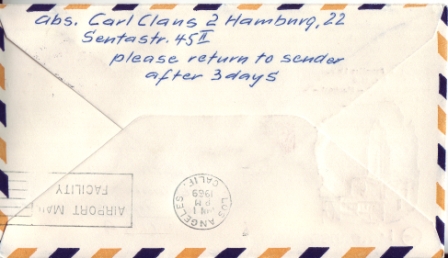 abs. Carl Claus 2 Hamburg, 22
Sentastr. 45 II
please return to sender
after 3 days
AIRPORT MAIL
FACILITY
LOS ANGELES
CALIF.
PM
1969